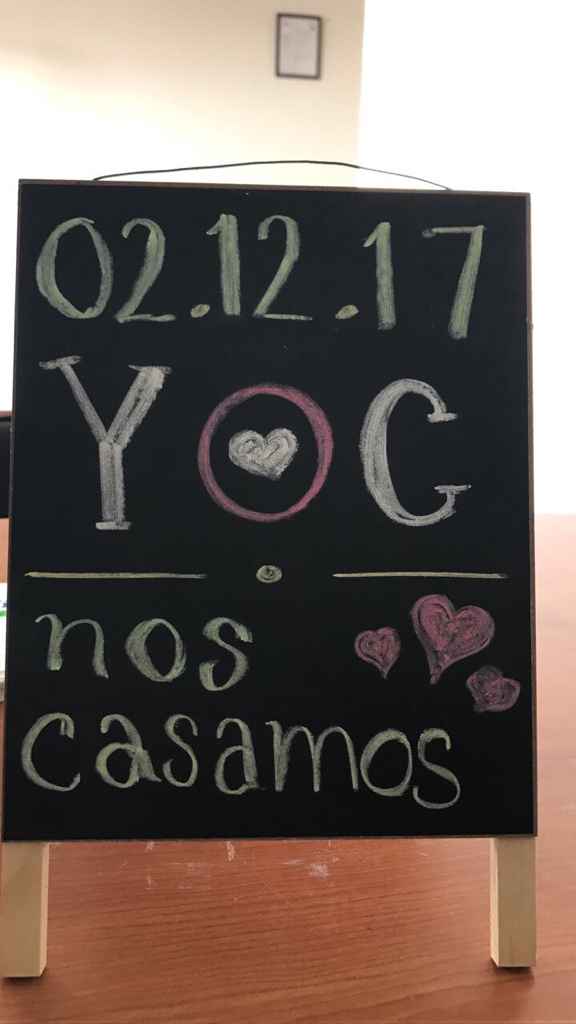 02.12.17
Y G
nos
casamos